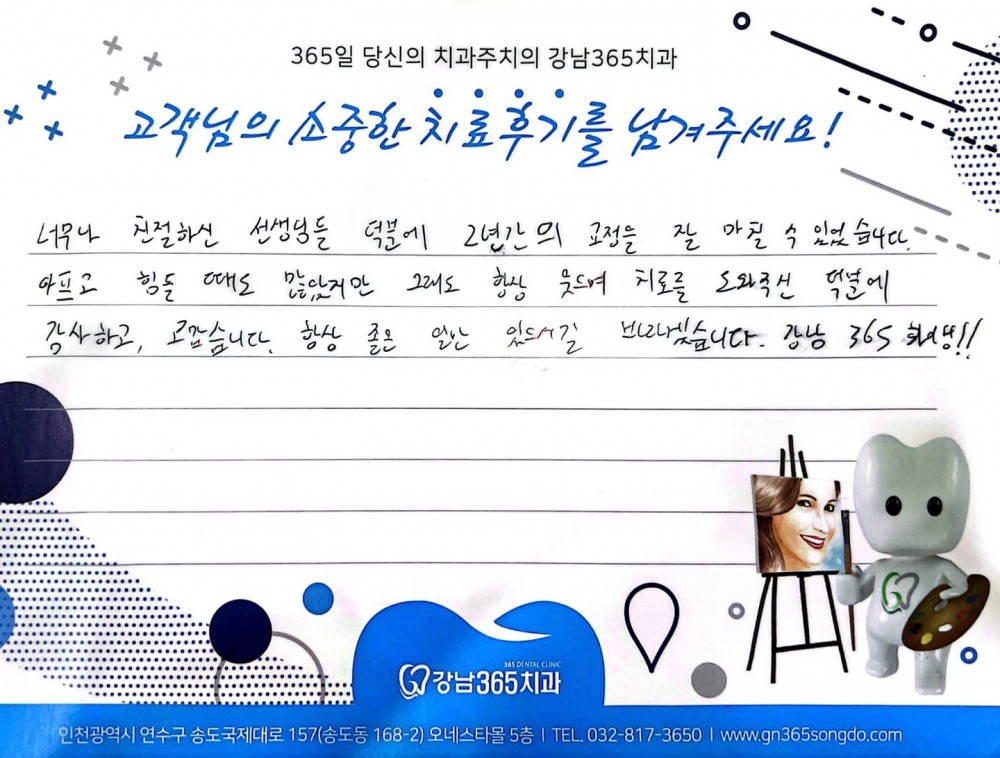 365일 당신의 치과주치의 강남365치과
고객님의 소중한 치료후기를 남겨주세요!
너무나 친절하신 선생님들 덕분에 2년간의 교정을 잘 마칠 수 있었습니다.
아프고 힘들 때도 많았지만 그래도 항상 웃으며 치료를 도와주신 덕분에
감사하고, 고맙습니다. 항상 좋은 일만 있으시길 바라겠습니다. 강남 365
365 DENTAL CLINIC
강남365치과
인천광역시 연수구 송도국제대로 157(송도동 168-2) 오네스타몰 5층 | TEL. 032-817-3650 | www.gn365songdo.com